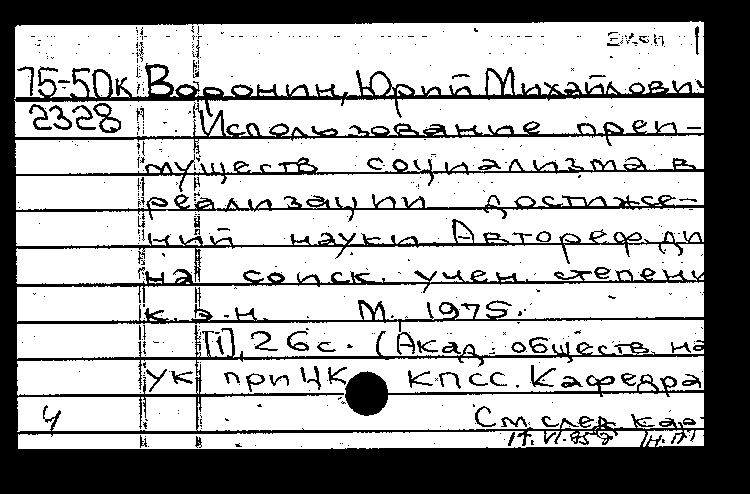 Экон
75-50к Воронин, Юрий Михайлович
2328 Использование преи-
муществ социализма в
реализации достиже-
ний науки Автореф. ди
на соиск. учен. степени
к. э. н. М., 1975.
[1], 26 с. (Акад. обществ. на
ук при ЦК КПСС. Кафедра
4 См след. кар-